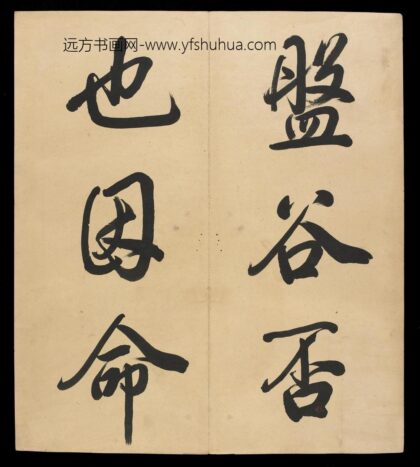 远方书画网-www.yfshuhua.com
盤谷否
也因命